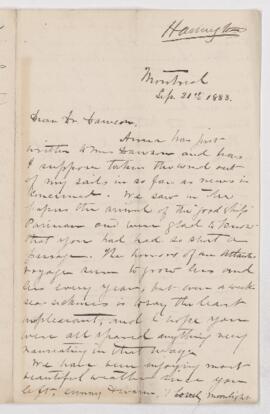 Harrington
Montreal
Sep. 21st 1883.
Dear Dr. Dawson.
Anna has just
written to Mrs Dawson and has
I suppose taken the wind out
of my sails in so far as news is
concerned. We saw in the
papers the arrival of the good ship
Parisian and were glad to know
that you had had so short a
passage. The horrors of an Atlantic
voyage seem to grow less and
less every year, but even a week
sea-sickness is to say the least
unpleasant, and I hope you
were all spared anything very
nauseating in that way.
We have been enjoying most
beautiful weather since you
left, sunny days & lovely moonlight